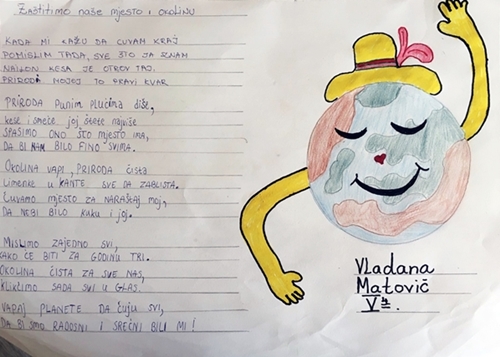 ZAŠTITIMO naše mjesto i OKOLINU
KADA MI KAŽU DA ČUVAM KRAJ
POMISLIM TADA, SVE ŠTO JA ZNAM
NAJLON KESA JE OTROV TAJ.
PRIRODI MOJOJ TO PRAVI KVAR
PRIRODA Punim PLUĆIMA DIŠE,
kese i smeće joj štete najviše
SPASIMO ONO ŠTO MJESTO IMA,
DA BI NAM BILO FINO SVIMA.
OKOLINA VAPI, PRIRODA čista
Limenke u KANTE SVE DA ZABLISTA.
ČUVAMO MJESTO ZA NARAŠTAJ MOJ,
DA NEBI BILO kuku i joj.
MISLIMO ZAJEDNO SVI,
KAKO ĆE BITI ZA GODINU TRI.
OKOLINA ČISTA ZA SVE NAS,
KLIKTIMO SADA SVI U GLAS.
VAPAJ PLANETE DA ČUJU SVI,
DA BI SMO RADOSNI I SREĆNI BILI MI!
Vladana
Matović
V4.